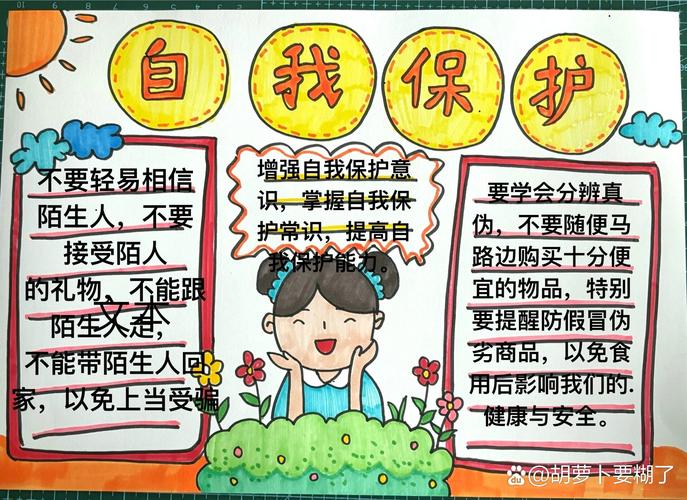 自我保护
不要轻易相信
陌生人，不要
接受陌人
的礼物，不能跟
陌生人走，
不能带陌生人回
家，以免上当受骗
文本
增强自我保护意
识，掌握自我保
护常识，提高自
我保护能力。
要学会分辨真
伪，不要随便马
路边购买十分便
宜的物品，特别
要提醒防假冒伪
劣商品，以免食
用后影响我们的.
健康与安全。
@胡萝卜要糊了